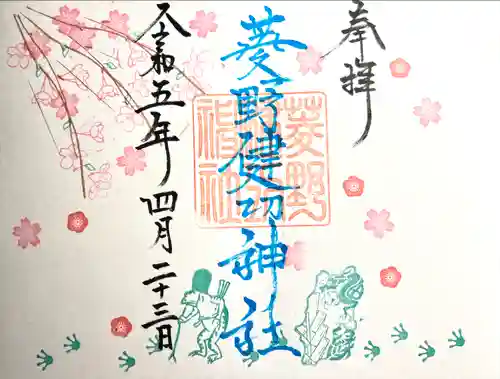 奉拝
菱野健功神社
菱野健功神社
令和五年四月二十三日